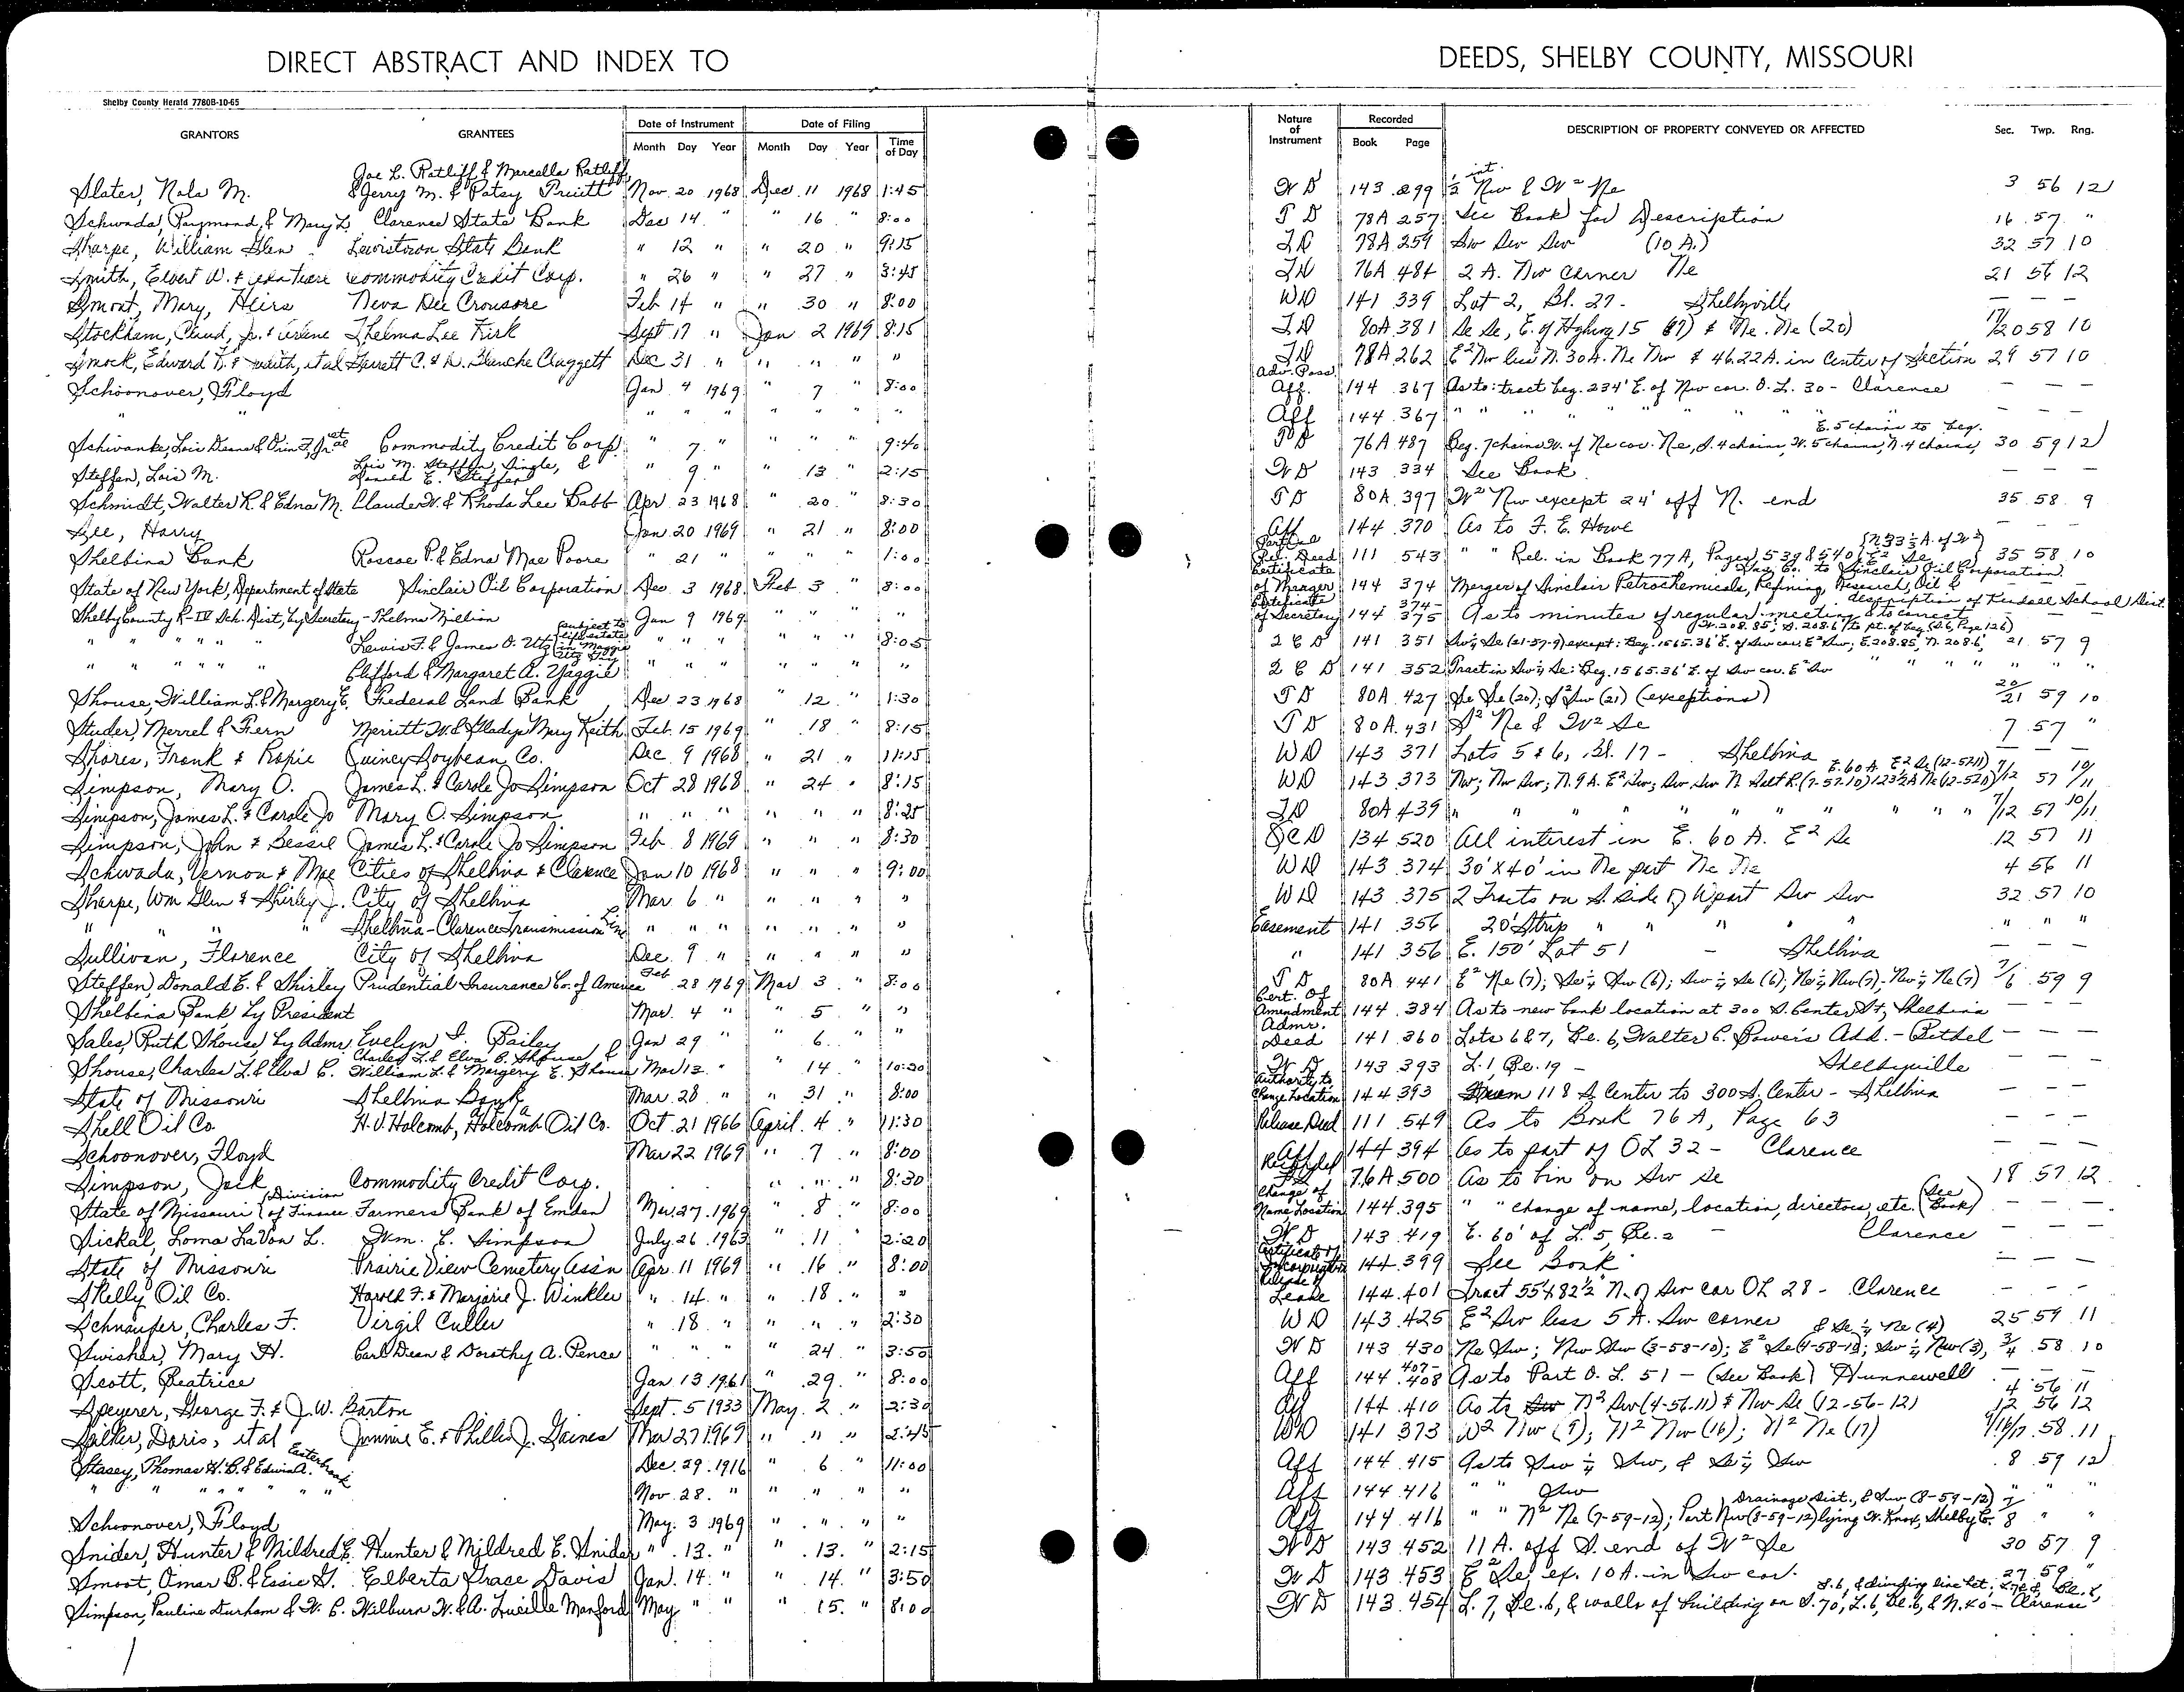 DIRECT ABSTRACT AND INDEX TO DEEDS, SHELBY COUNTY, MISSOURI
Shelby County Herald 7780B-10-65
GRANTORS GRANTEES Date of Instrument Date of Filing Nature of Instrument Recorded DESCRIPTION OF PROPERTY CONVEYED OR AFFECTED Sec. Twp. Rng.
Month Day Year Month Day Year Time of Day Book Page
Joe L. Ratliff & Marcella Ratliff
Slater, Nola M. & Jerry M. & Patsy Pruitt Nov. 20 1968 Dec. 11 1968 1:45 W D 143 299 ½ int. Nw & W² Ne 3 56 12
Schwada, Raymond, & Mary L. Clarence State Bank Dec 14 " " 16 " 8:00 T D 78A 257 See Book for Description 16 57 "
Sharpe, William Glen Lewistown State Bank " 12 " " 20 " 9:15 T D 78A 259 Sw Sw Sw (10 A.) 32 57 10
Smith, Elbert W. & Commodity Credit Corp. " 26 " " 27 " 3:45 T D 76A 484 2 A. Nw Corner Ne 21 56 12
Smoot, Mary, Heirs Neva Dee Crousore Feb 14 " " 30 " 8:00 WD 141 339 Lot 2, Bl. 27 - Shelbyville — — —
Stockham, Claud, Jr. & Arlene Thelma Lee Kirk Sept 17 " Jan 2 1969 8:15 T D 80A 381 Se Se, E. of Hghwy 15 & Ne. Ne (20) 17/20 58 10
Smock, Edward F. & Judith, et al Garrett C. & D. Blanche Claggett Dec 31 " " " " " T D 78A 262 E² Nw less N. 30 A. Ne Nw & 46.22 A. in Center of Section 29 57 10
Schoonover, Floyd Jan 4 1969 " 7 " 8:00 Adv. Poss. Aff. 144 367 As to: tract beg. 234' E. of Nw cor. O. L. 30 - Clarence — — —
" " " " " " " " " Aff 144 367 " " " " " " " — — —
Schwanke, Lois Deane & Orin F., Jr. et al Commodity Credit Corp. " 7 " " " " 9:40 T D 76A 487 Beg. 7 chains W. of Ne cor. Ne, S. 4 chains, W. 5 chains, N. 4 chains, E. 5 chains to beg. 30 59 12
Steffen, Lois M. Lois M. Steffen, Single, & Daniel E. Steffen " 9 " " 13 " 2:15 W D 143 334 See Book — — —
Schmidt, Walter R. & Edna M. Claude W. & Rhoda Lee Babb Apr 23 1968 " 20 " 8:30 T D 80A 397 W² Nw except 24' off N. end 35 58 9
See, Harry Jan 20 1969 " 21 " 8:00 Aff 144 370 As to F. E. Howe — — —
Shelbina Bank Roscoe P. & Edna Mae Poore " 21 " " " 1:00 Partial Rel. Deed 111 543 " " Rel. in Book 77A, Pages 539 & 540 (N. 33⅓ A. of W²) E² Se 35 58 10
State of New York, Department of State Sinclair Oil Corporation Dec 3 1968 Feb 3 " 8:00 Certificate of Merger 144 374 Merger of Sinclair Petrochemicals, Refining, Research, Oil & Gas Co. to Sinclair Oil Corporation — — —
Shelby County R-IV Sch. Dist., by Secretary - Thelma Million Jan 9 1969 " " " " Certificate of Secretary 144 374-375 As to minutes of regular meeting & to correct description of Kendall School Dist.
" " " " " Lewis F. & James O. Utz (subject to life estate in Maggie Utz) " " " " " " 8:05 2 C D 141 351 Sw¼ Se (21-57-9) except: Beg. 1565.36' E. of Sw cor. E² Sw; E. 208.85', N. 208.6', W. 208.85', S. 208.6' to pt. of beg. 21 57 9
" " " " " Clifford & Margaret A. Yaggie " " " " " " " 2 C D 141 352 Tract in Sw¼ Se: Beg. 1565.36' E. of Sw cor. E² Sw " " "
Shouse, William L. & Margery E. Federal Land Bank Dec 23 1968 " 12 " 1:30 T D 80A 427 Se Se (20); S² Sw (21) (exceptions) 20/21 59 10
Studer, Merrel & Fern Merritt W. & Gladys Mary Keith Feb. 15 1969 " 18 " 8:15 T D 80A 431 S² Ne & W² Se 7 57 "
Shores, Frank & Ropie Quincy Soybean Co. Dec. 9 1968 " 21 " 11:15 WD 143 371 Lots 5 & 6, Bl. 17 - Shelbina — — —
Simpson, Mary O. James L. & Carole Jo Simpson Oct 28 1968 " 24 " 8:15 WD 143 373 Nw; Nw Sw; N. 9 A. E² Sw; Sw Sw N. Salt R. (7-57-10) E. 60 A. E² Se (12-57-11) 7/12 57 10/11
Simpson, James L. & Carole Jo Mary O. Simpson " " " " " " 8:25 T D 80A 439 " " " " " " " 7/12 57 10/11
Simpson, John & Bessie James L. & Carole Jo Simpson Feb 8 1969 " " " 8:30 Q C D 134 520 All interest in E. 60 A. E² Se 12 57 11
Schwada, Vernon & Mae Cities of Shelbina & Clarence Jan 10 1968 " " " 9:00 WD 143 374 30' X 40' in Ne part Ne Ne 4 56 11
Sharpe, Wm Glen & Shirley J. City of Shelbina Mar 6 " " " " " WD 143 375 2 Tracts on S. side of W part Sw Sw 32 57 10
" " " " Shelbina-Clarence Transmission Line " " " " " " " Easement 141 356 20' Strip " " " " " " "
Sullivan, Florence City of Shelbina Dec. 9 " " " " " " 141 356 E. 150' Lot 51 - Shelbina — — —
Steffen, Donald E. & Shirley Prudential Insurance Co. of America Feb 28 1969 Mar 3 " 8:00 T D 80A 441 E² Ne (7); Se¼ Sw (6); Sw¼ Se (6); Ne¼ Nw (7), Nw¼ Ne (7) 7/6 59 9
Shelbina Bank by President Mar. 4 " " 5 " " Cert. Of Amendment 144 384 As to new bank location at 300 S. Center St, Shelbina — — —
Sales, Ruth Shouse by Adms. Evelyn I. Bailey Jan 29 " " 6 " " Admr. Deed 141 360 Lots 6 & 7, Bl. 6, Walter C. Powers Add. - Bethel — — —
Shouse, Charles L. & Elva C. Charles L. & Elva C. Shouse & William L. & Margery E. Shouse Mar 12 " " 14 " 10:30 W D 143 393 L. 1, Bl. 19 - Shelbyville — — —
State of Missouri Shelbina Bank Mar. 28 " " 31 " 8:00 Authority to Change Location 144 393 From 118 S. Center to 300 S. Center - Shelbina — — —
Shell Oil Co. H. V. Holcomb, Holcomb Oil Co. Oct. 21 1966 April 4 " 11:30 Release Deed 111 549 As to Book 76 A, Page 63 — — —
Schoonover, Floyd Mar 22 1969 " 7 " 8:00 Aff 144 394 As to part of OL 32 - Clarence — — —
Simpson, Jack Commodity Credit Corp. " " " 8:30 76A 500 As to bin on Sw Se 18 57 12
State of Missouri (Division of Finance Farmers Bank of Emden Mar. 27 1969 " 8 " 8:00 Change of Name Location 144 395 " " change of name, location, directors, etc. (See Book) — — —
Sickal, Loma LaVon L. Wm. C. Simpson July 26 1963 " 11 " 2:20 W D 143 419 E. 60' of L. 5, Bl. 2 - Clarence — — —
State of Missouri Prairie View Cemetery Ass'n Apr. 11 1969 " 16 " 8:00 Certificate of Incorporation 144 399 See Book — — —
Skelly Oil Co. Harold F. & Marjorie J. Winkler " 14 " " 18 " " Release of Lease 144 401 Tract 55' X 82½' N. of Sw cor OL 28 - Clarence — — —
Schnaufer, Charles F. Virgil Culler " 18 " " " " 2:30 WD 143 425 E² Sw less 5 A. Sw corner 25 59 11
Swisher, Mary H. Carl Dean & Dorothy A. Pence " " " " 24 " 3:50 W D 143 430 Ne Sw; Nw Sw (3-58-10); E² Se (4-58-10); Sw¼ Nw (3), & Se¼ Ne (4) 3/4 58 10
Scott, Beatrice Jan. 13 1961 " 29 " 8:00 Aff 144 407-408 As to Part O. L. 51 - (See Book) Hunnewell — — —
Speyerer, George F. & J. W. Barton Sept. 5 1933 May 2 " 2:30 Aff 144 410 As to N² Sw (4-56-11) & Nw Se (12-56-12) 4 56 11 12 56 12
Salker, Doris, et al Jimmie E. & Phillis J. Gaines Mar 27 1969 " " " 2:45 WD 141 373 W² Nw (9); N² Nw (16); N² Ne (17) 9/16/17 58 11
Stasey, Thomas H. B. & Edwin A. Easterbrook Dec. 29 1916 " 6 " 11:00 Aff 144 415 As to Sw¼ Sw, & Se¼ Sw 8 59 12
" " " " " " Nov. 28 " " " " " Aff 144 416 " " Sw " " "
Schoonover, Floyd May 3 1969 " " " " Aff 144 416 " " N² Ne (7-59-12); Part Nw (8-59-12) lying W. Knox, Shelby Co. Drainage Dist., & Sw (8-59-12) 7/8 " "
Snider, Hunter & Mildred E. Hunter & Mildred E. Snider " 13 " " 13 " 2:15 W D 143 452 11 A. off S. end of W² Se 30 57 9
Smoot, Omar B. & Essie G. Elberta Grace Davis Jan. 14 " " 14 " 3:50 W D 143 453 E² Se, ex. 10 A. in Sw cor. 27 59 "
Simpson, Pauline Durham & W. C. Wilburn W. & A. Lucille Manford May " " " 15 " 8:00 W D 143 454 L. 7, Bl. 6, & walls of building on S. 70', L. 6, Bl. 6, & N. 40 - Clarence